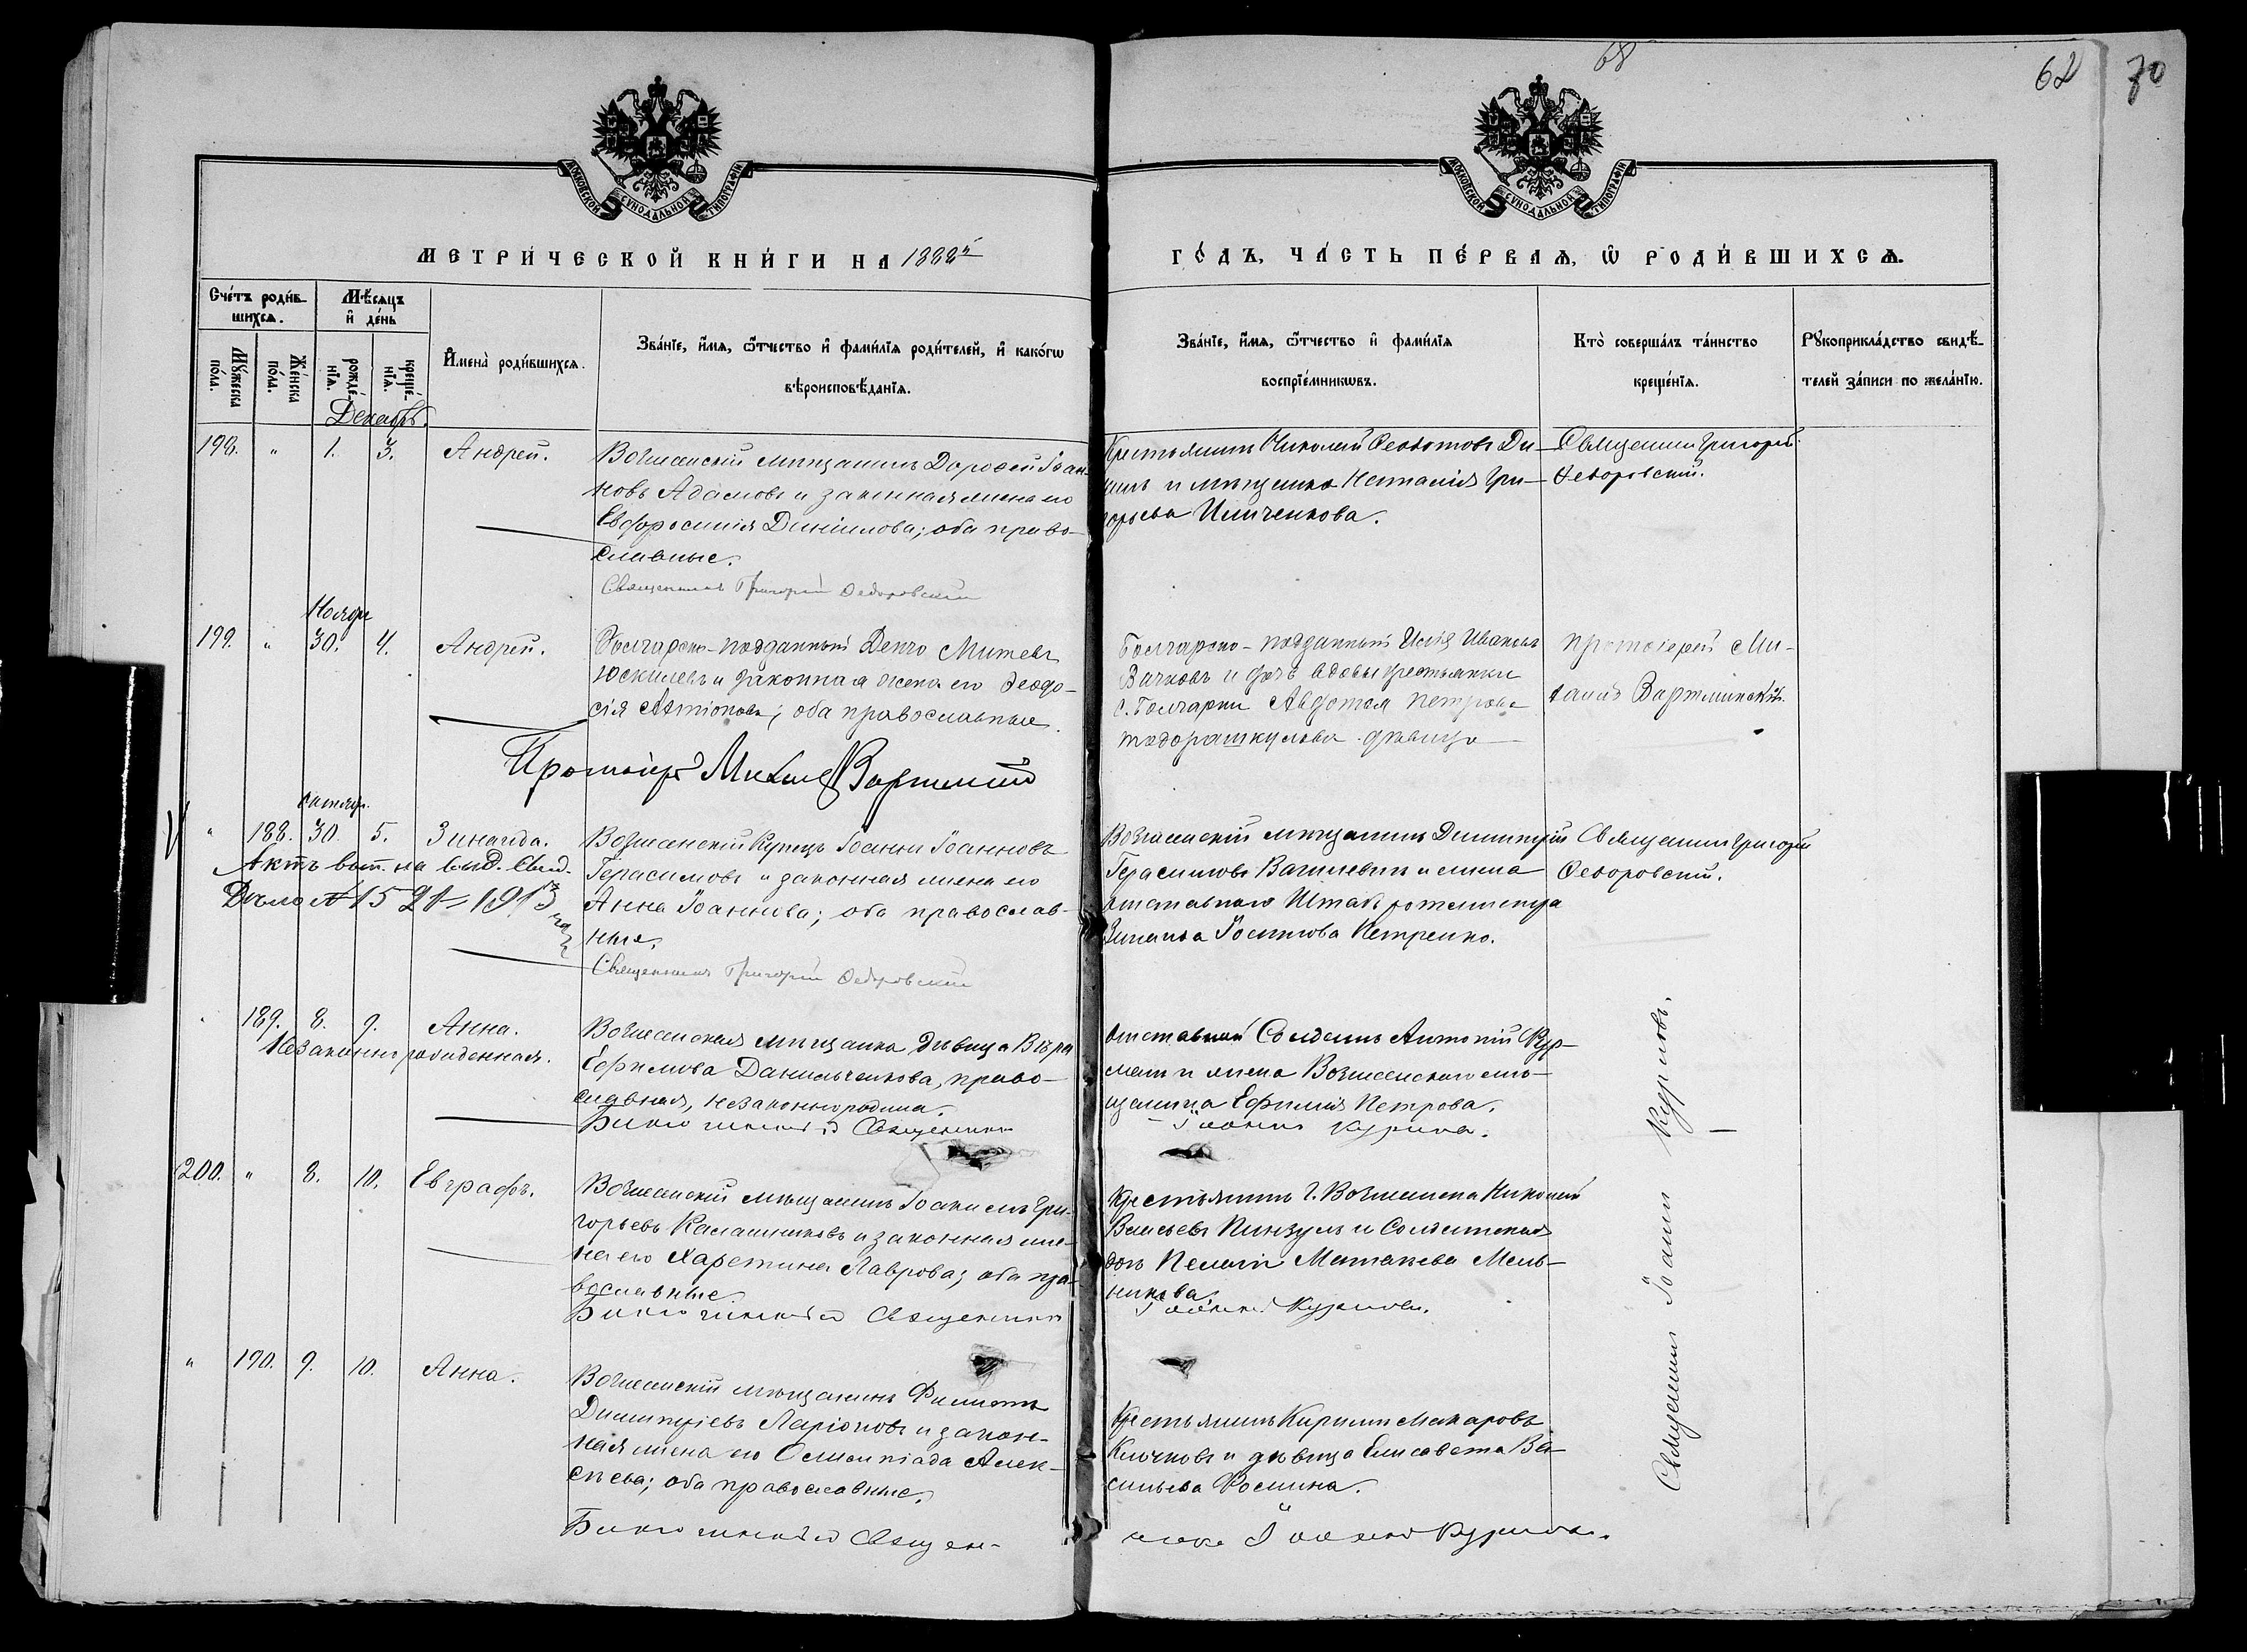 68
62
70
МОСКОВСКОЙ СѴНОДАЛЬНОЙ ТИПОГРАФІИ
МОСКОВСКОЙ СѴНОДАЛЬНОЙ ТИПОГРАФІИ
МЕТРИ́ЧЕСКОЙ КНИ́ГИ НА 1888й
ГО́ДЪ, ЧА́СТЬ ПЕ́РВАѦ, Ѡ҆ РОДИ́ВШИХСѦ.
Сче́тъ роди́в-
шихсѧ.
Мѣ́сѧцъ
и҆ де́нь
Мꙋ́жеска по́ла.
Же́нска по́ла.
рожде́нїѧ.
креще́нїѧ.
И҆мена̀ роди́вшихсѧ.
Зва́нїе, и҆́мѧ, ѻ҆́тчество и҆ фами́лїѧ роди́телей, и҆ како́гѡ
вѣроисповѣ́данїѧ.
Зва́нїе, и҆́мѧ, ѻ҆́тчество и҆ фами́лїѧ
воспрїе́мникѡвъ.
Кто̀ соверша́лъ та́инство
креще́нїѧ.
Рꙋкоприкла́дство свидѣ́-
телей за́писи по жела́нїю.
Декабрь.
198. " 1. 3. Андрей.
Вознесенскій мѣщанинъ Дорофей Іоан-
новъ Адамовъ и законная жена его
Евфросинія Даніилова; оба право-
славные.
Священникъ Григорій Федоровскій
Крестьянинъ Николай Феодотовъ Ди-
и мѣщанка Наталія Гри-
горьева
Священникъ Григорій
Федоровскій.
Ноябр
199. " 30. 4. Андрей.
Болгарско-подданный Денчо Митевъ
и законная жена его Феодо-
сія Антонова; оба православные.
Протоіерей Михаилъ Вартминскій
Болгарско-подданный Илія Ивановъ
Вачковъ и дочь вдовы крестьянки
с. Болгарки Авдотья Петрова
девица
Протоіерей Ми-
хаилъ Вартминскій.
Октябр.
" 188. 30. 5. Зинаида.
Актъ выд. Свид.
Дѣло № 1521 1913
Вознесенскій Купецъ Іоаннъ Іоанновъ
Герасимовъ и законная жена его
Анна Іоаннова; оба православ-
ные.
Священникъ Григорій Федоровскій
Вознесенскій мѣщанинъ Димитрій
Герасимовъ и жена
отставного Штабъ ротмистра
Зинаида Іосифова Петренко.
Священникъ Григорій
Федоровскій.
189. 8. 9. Анна.
Незаконнорожденная.
Вознесенская мѣщанка девица Вѣра
Ефимова Данильченкова, право-
славная, незаконнородила.
Священникъ
Отставной Солдатъ Антоній Кур-
и жена Вознесенскаго мѣ-
щанина Ефимія Петрова.
Іоаннъ Курилов.
200. " 8. 10. Евграфъ.
Вознесенскій мѣщанинъ Іоакимъ Гри-
горьевъ Калашниковъ и законная же-
на его Харетина Лаврова; оба пра-
вославные.
Священникъ
Крестьянинъ г. Вознесенска Николай
Васильевъ и Солдатская
дочь Пелагія Матвеева Мель-
никова.
Іоаннъ Курилов.
" 190. 9. 10. Анна.
Вознесенскій мѣщанинъ Филиппъ
Димитріевъ Ларіоновъ и закон-
ная жена его Олимпіада Алек-
сѣева; оба православные.
Священ-
Крестьянинъ Кириллъ Макаровъ
Клочковъ и дѣвица Елисавета Ва-
сильева Фомина.
никъ Іоаннъ Курилов.
Священникъ Іоаннъ Куриловъ.